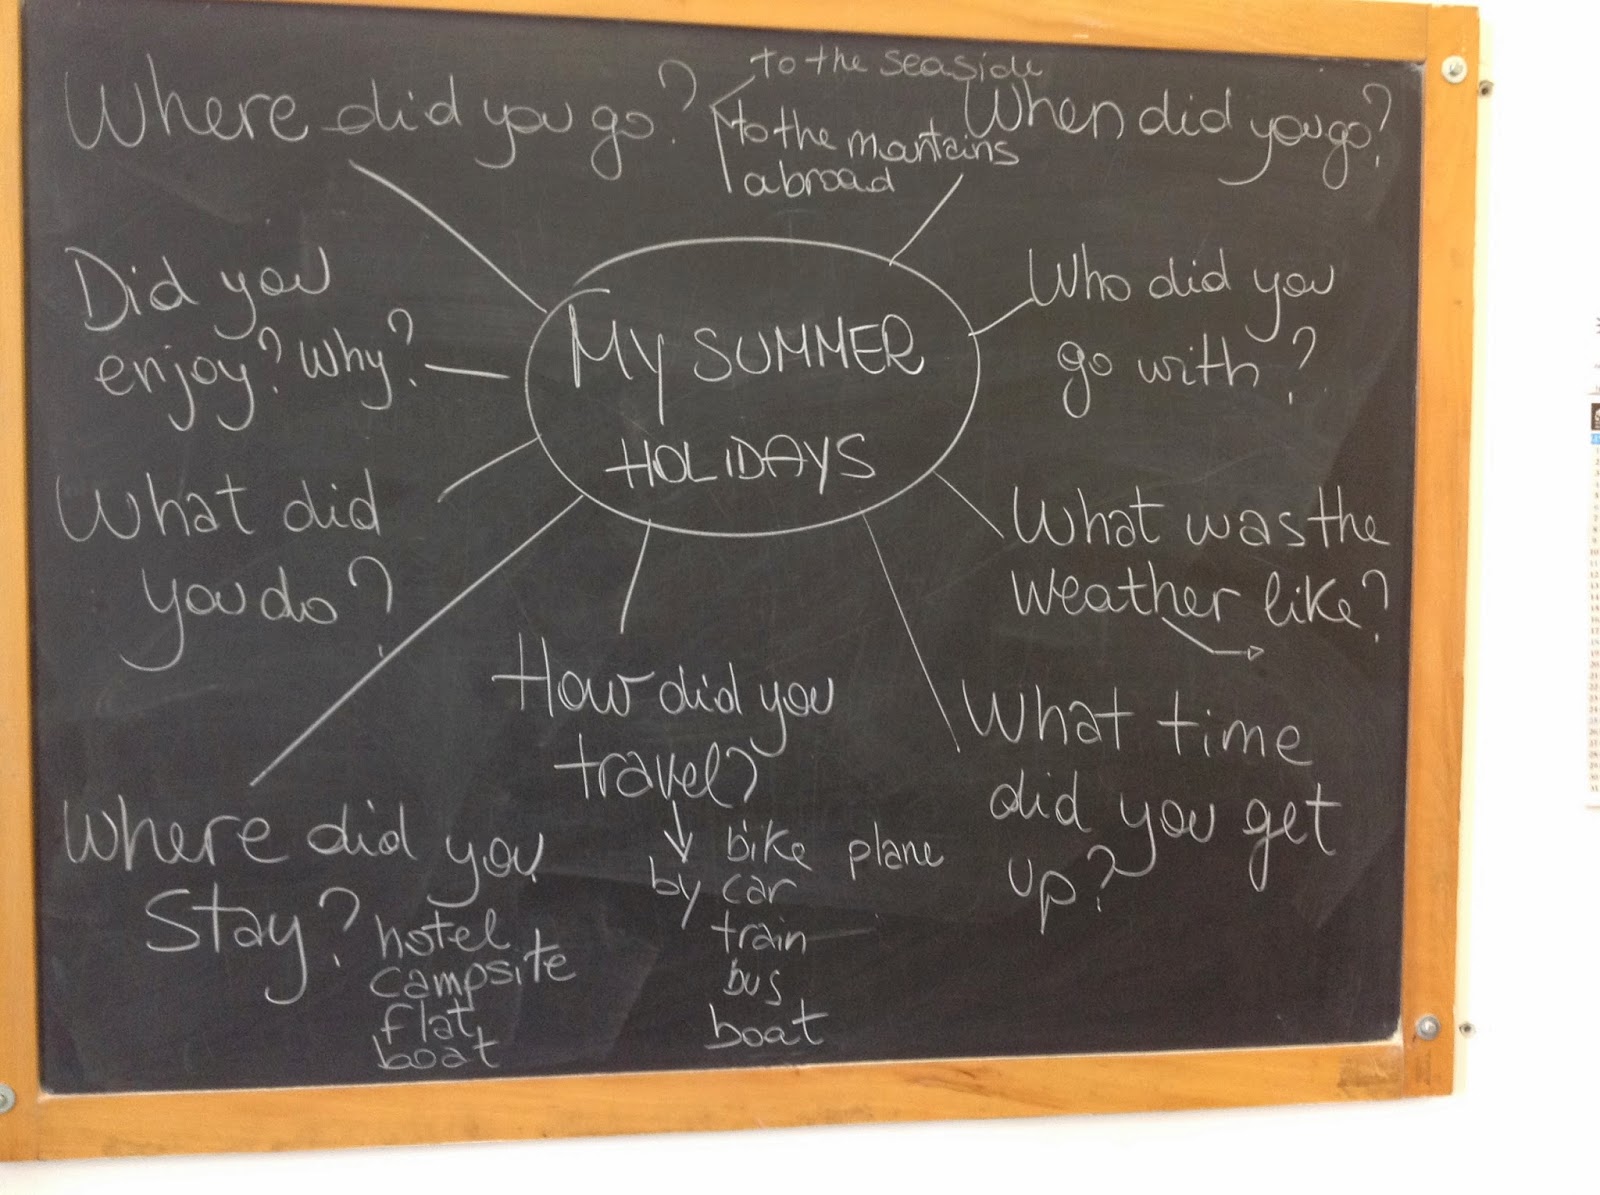 Where did you go?
to the seaside
to the mantains
abroad
When did you go?
Did you
enjoy? Why?
MY SUMMER
HOLIDAYS
Who did you
go with?
What did
you do?
What was the
weather like?
How did you
travel?
by bike plane
car
train
bus
boat
What time
did you get
up?
Where did you
stay?
hotel
campsite
flat
boat